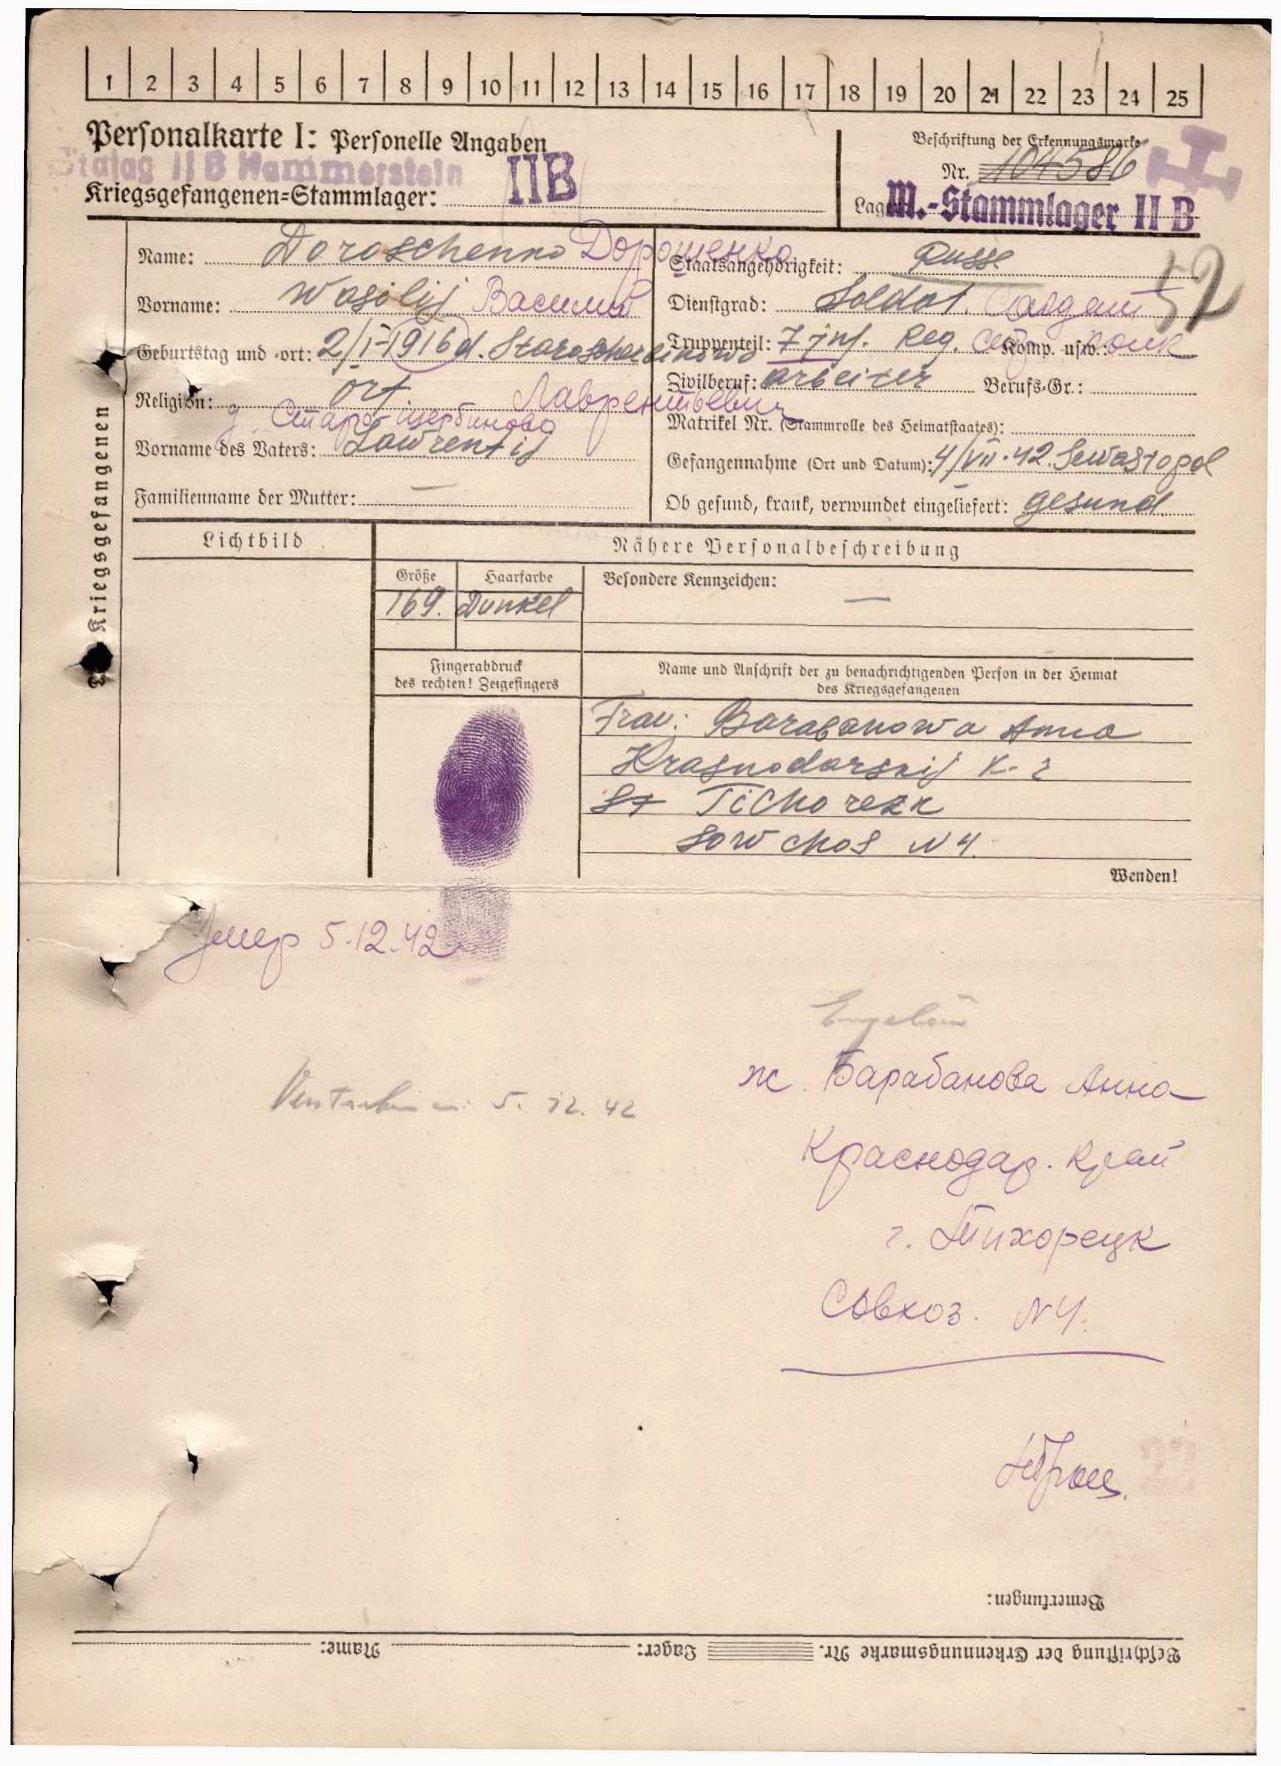 1 2 3 4 5 6 7 8 9 10 11 12 13 14 15 16 17 18 19 20 21 22 23 24 25
Personalkarte I: Personelle Angaben
Stalag II B Hammerstein
Kriegsgefangenen-Stammlager: IIB
Beschriftung der Erkennungsmarke
Nr. 104586
Lager: M.-Stammlager II B
52
des Kriegsgefangenen
Name: Doroschenko Дорошенко
Vorname: Wasilij Василий
Geburtstag und -ort: 2/I-1916 d. Staroscherbinowo
Religion: ort Лаврентьевич
д. Старо-щербиново
Vorname des Vaters: Lawrentij
Familienname der Mutter: —
Staatsangehörigkeit: Russe
Dienstgrad: Soldat. Солдат
Truppenteil: 7 inf. Reg. Komp. usw.: полк
Zivilberuf: arbeiter Berufs-Gr.:
Matrikel Nr. (Stammrolle des Heimatstaates):
Gefangennahme (Ort und Datum): 4/VII.42. Sewastopol
Ob gesund, krank, verwundet eingeliefert: gesund.
Lichtbild
Nähere Personalbeschreibung
Größe Haarfarbe Besondere Kennzeichen:
169. Dunkel —
Fingerabdruck
des rechten! Zeigefingers
Name und Anschrift der zu benachrichtigenden Person in der Heimat
des Kriegsgefangenen
Frau: Barabanowa Anna
Krasnodarskij K-
St Tichorezk
Sowchos N4.
Wenden!
Умер 5.12.42
ж. Барабанова Анна
Verstorben am 5. 12. 42
Краснодар. край
г. Тихорецк
Совхоз. N4.
Bemerkungen:
Beschriftung der Erkennungsmarke Nr. Lager: Name: